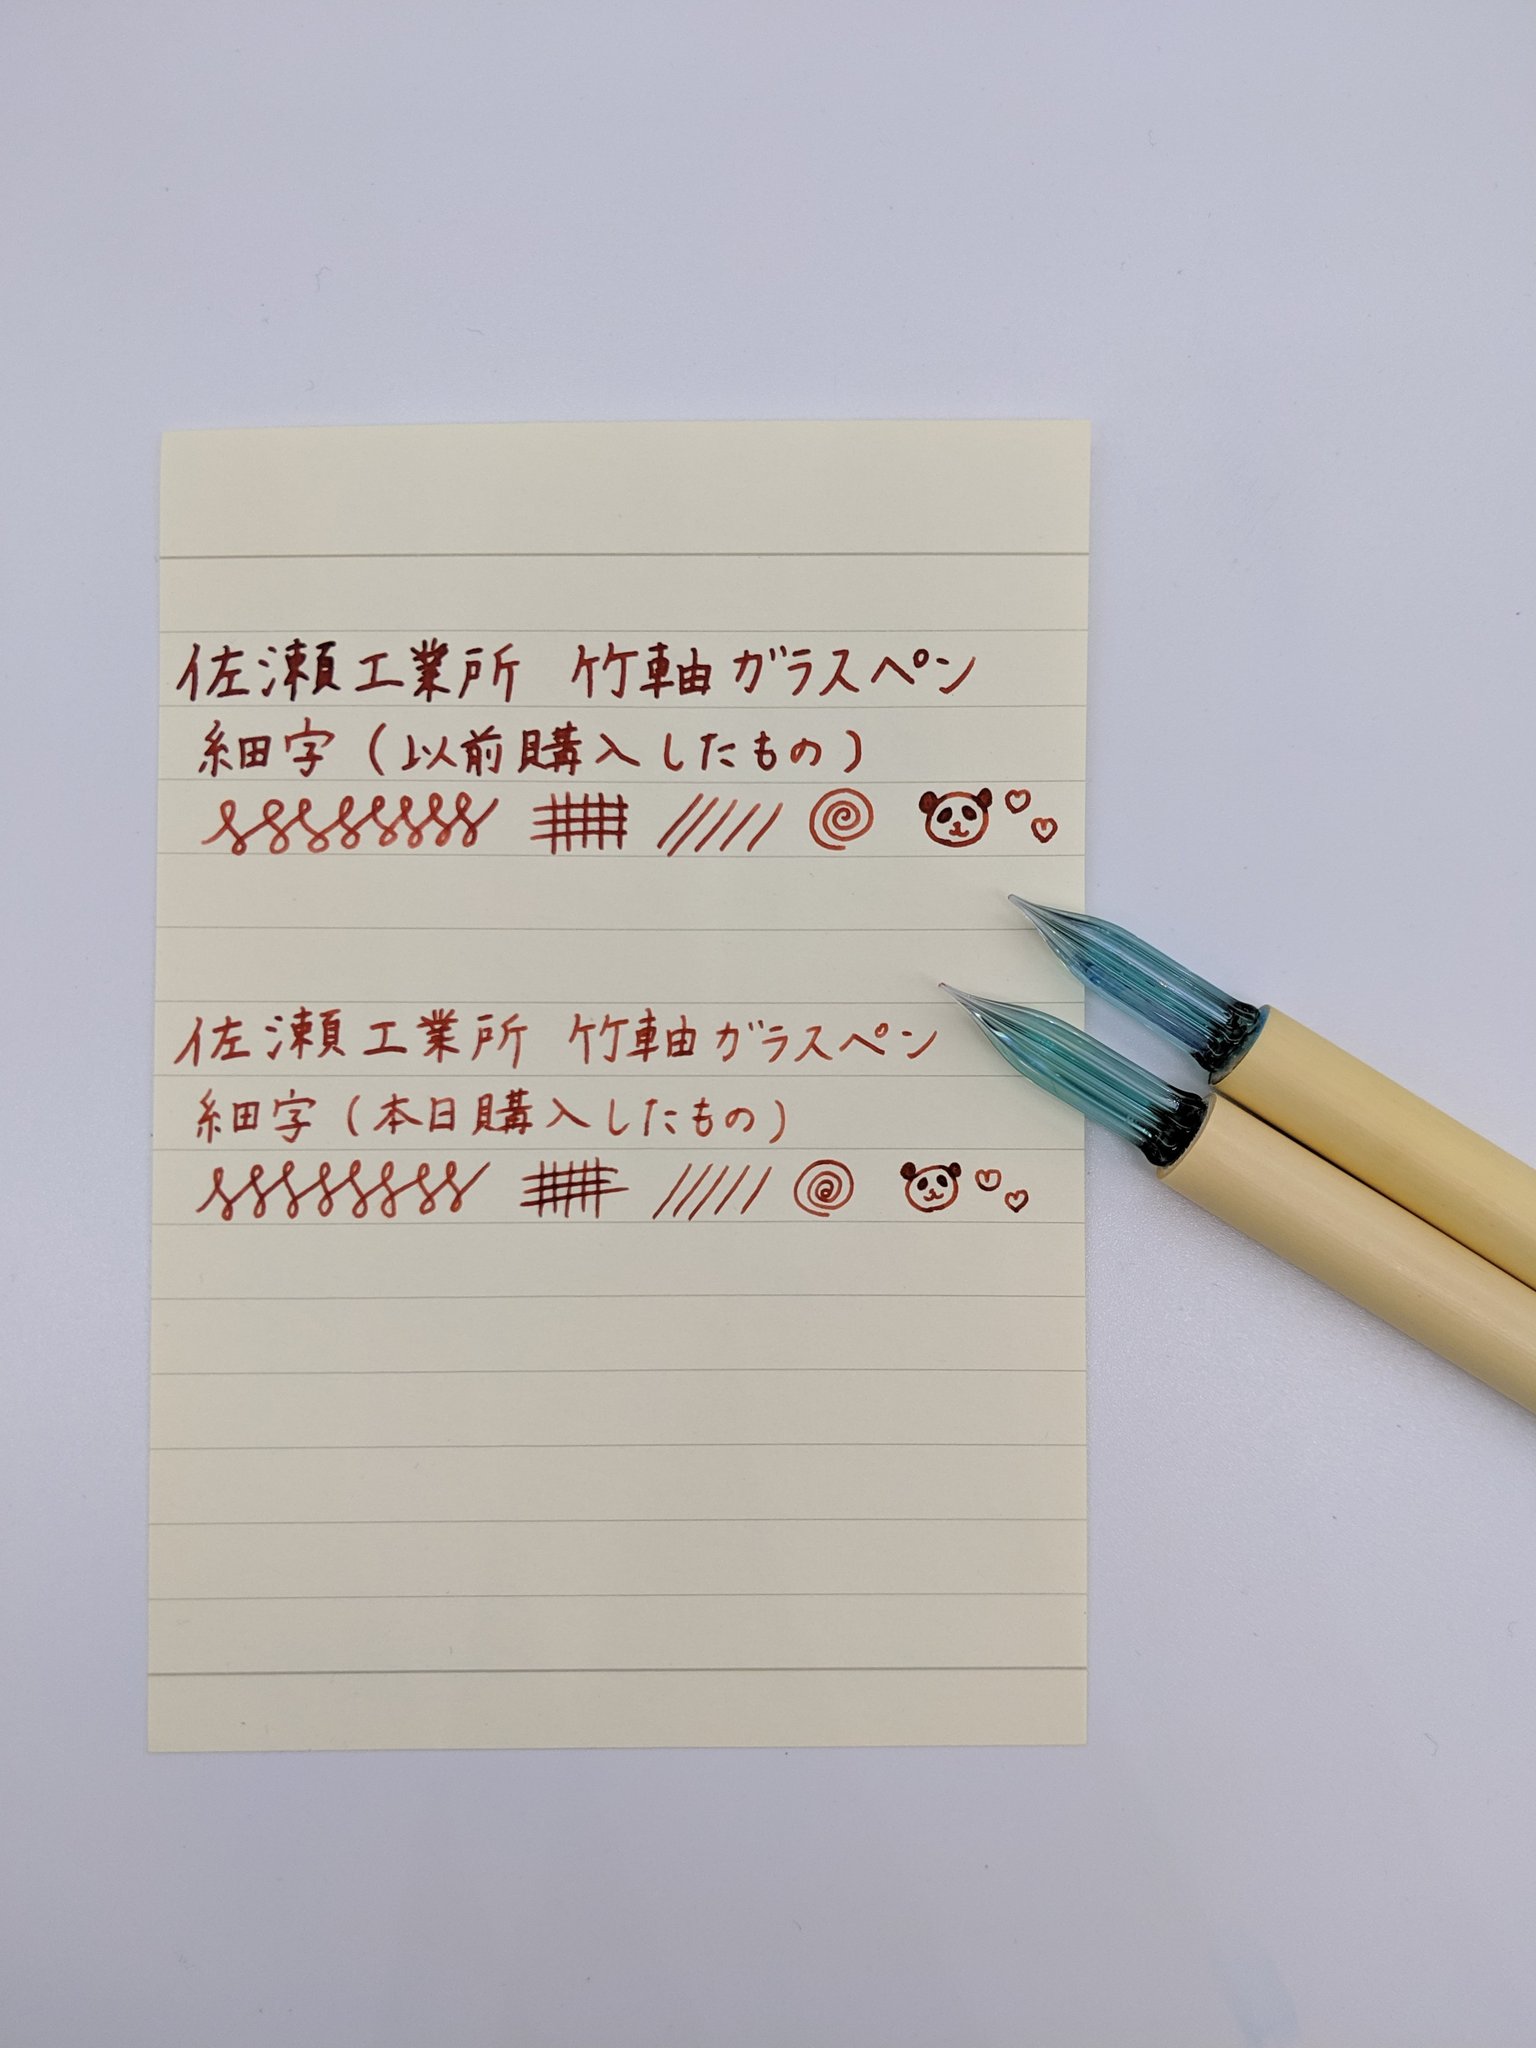 佐瀬工業所 竹軸ガラスペン
細字(以前購入したもの)
佐瀬工業所 竹軸ガラスペン
細字(本日購入したもの)